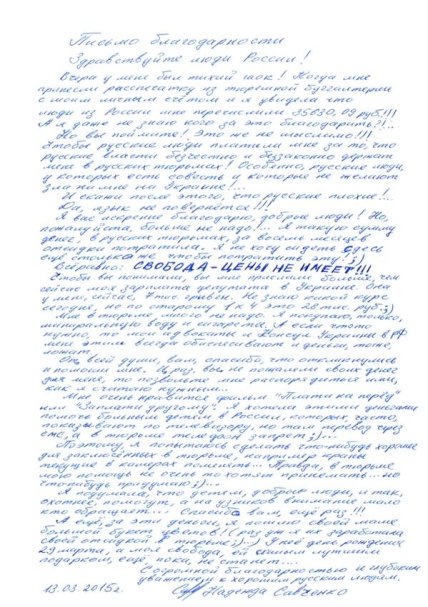 Письмо благодарности
Здравствуйте люди России!
Вчера у меня был тихий шок! Когда мне
принесли распечатку из тюремной бухгалтерии
с моим личным счётом и я увидела что
люди из России мне перечислили 35630,09 руб!!!
А я даже не знаю кого за это благодарить?!..
Но вы поймите! Это же не мыслимо!!!
Чтобы русские люди платили мне за то, что
русские власти безчестно и беззаконно держат
меня в русских тюрьмах! Особенно, русские люди,
у которых есть совесть и которые не желают
зла ни мне ни Украине!...
И скажи после этого, что русские плохие!...
Да, язык не повернется!!!
Я вас искренне благодарю, добрые люди! Но,
пожалуйста, больше не надо!... Я такую сумму
денег, в русских тюрьмах, за восемь месяцев
отсидки потратила. Я не хочу сидеть здесь
ещё столько же чтобы потратить эту! :)
Всёравно, СВОБОДА - ЦЕНЫ НЕ ИМЕЕТ!!!
Чтобы вы понимали, вы мне прислали больше, чем
сейчас моя зарплата депутата в Украине. Она
у меня, сейчас, 6 тыс гривен. Не знаю ясный курс
сегодня, но по старому 1 к 4 это 24 тыс руб. :)
Мне в тюрьме много не надо. Я покупаю, только,
минеральную воду и сигареты. А если что-то
нужно, то мои адвокаты и Консул Украины в РФ
меня этим всегда обеспечивают и деньги, тоже,
ложат.
От, всей души, вам, спасибо, что откликнулись
и помогли мне. И, раз, вы не пожалели своих денег
для меня, то позвольте мне распорядиться ими,
как я считаю нужным...
Мне очень нравится фильм "Плати на перёд"
или "Заплати другому". Я хотела этими деньгами
помочь больным детям в России, которых, часто,
показывают по телевизору, но там перевод через
смс, а в тюрьме телефоны запрет :)...
Поэтому, я попытаюсь сделать что-нибудь хорошее
для заключённых в тюрьме, например краны
текущие в камерах поменять... Правда, в тюрьме
мою помощь не очень-то хотят принимать... но
что-нибудь придумаю :)...
Я подумала, что детям, добрые люди, и так,
охотнее, помогут, а на узников внимание мало
кто обращает... Спасибо вам, ещё раз!!!
А ещё, за эти деньги, я пошлю своей маме
большой букет цветов! (раз уж я их заработала
своей отсидкой в тюрьме :)...) У неё день рождения
29 марта, а моя свобода, ей самым лучшим
подарком, ещё, пока, не станет...
С огромной благодарностью и глубоким
уважением к хорошим русским людям,
13.03.2015г. Надежда Савченко